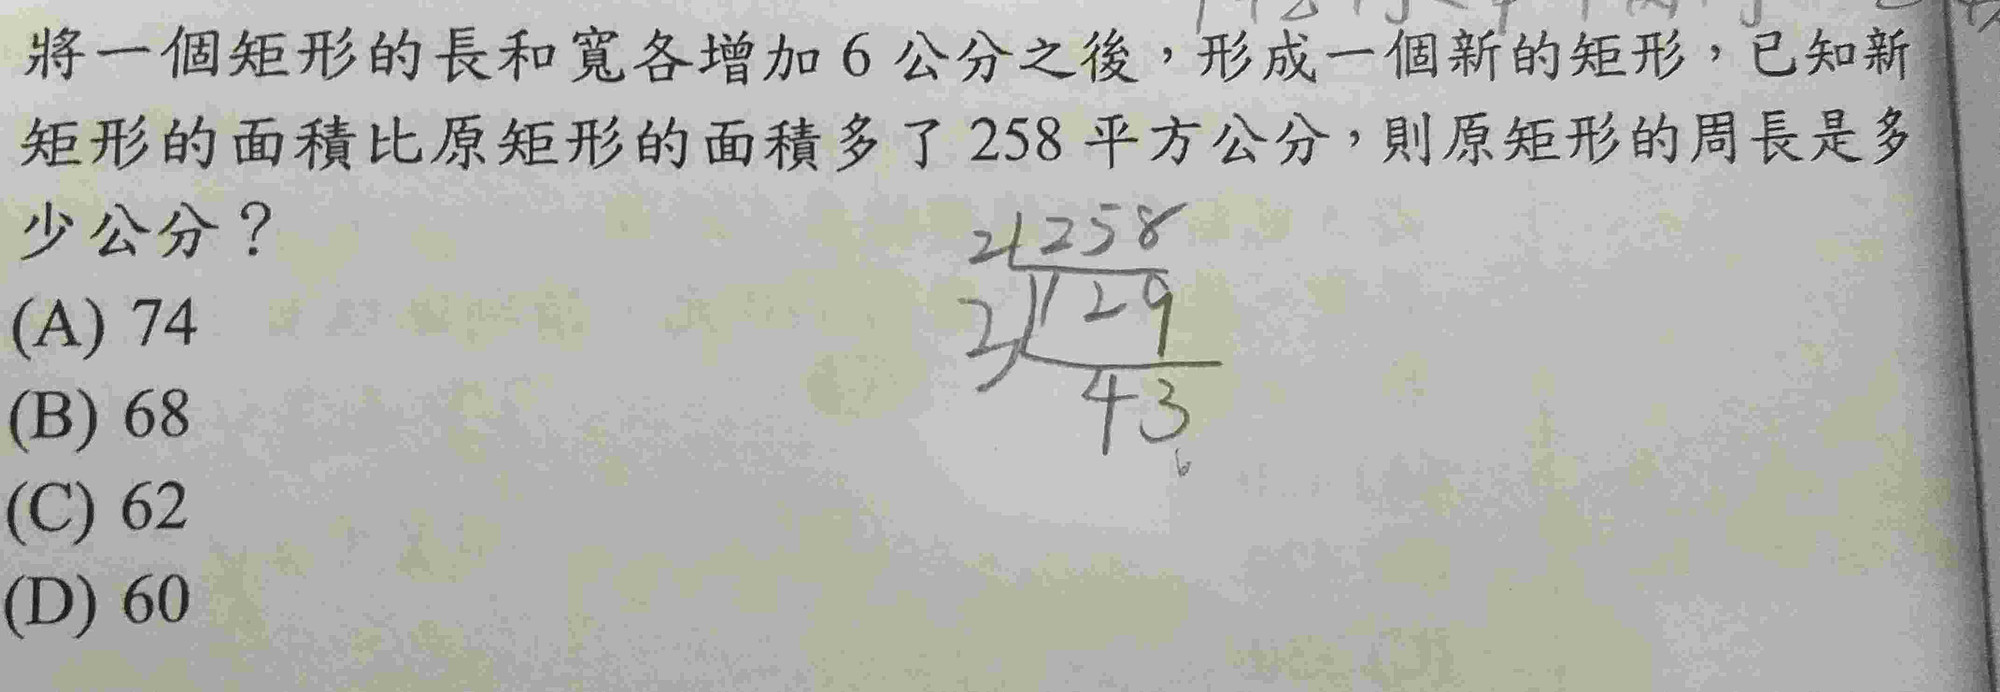 將一個矩形的長和寬各增加 6 公分之後，形成一個新的矩形，已知新
矩形的面積比原矩形的面積多了 258 平方公分，則原矩形的周長是多
少公分？
(A) 74
(B) 68
(C) 62
(D) 60
2 258
3 129
43